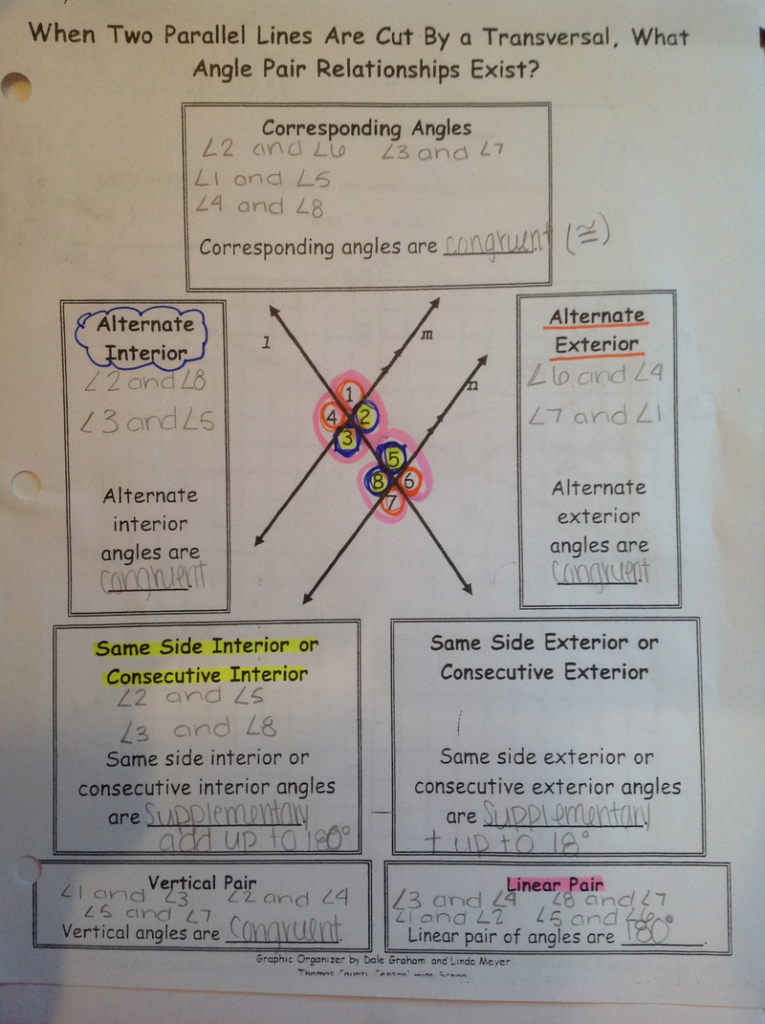 When Two Parallel Lines Are Cut By a Transversal, What
Angle Pair Relationships Exist?
Corresponding Angles
∠2 and ∠6 ∠3 and ∠7
∠1 and ∠5
∠4 and ∠8
Corresponding angles are congruent (≅)
Alternate
Interior
∠2 and ∠8
∠3 and ∠5
Alternate
interior
angles are
congruent.
l
m
n
1
4 2
3
5
8 6
7
Alternate
Exterior
∠6 and ∠4
∠7 and ∠1
Alternate
exterior
angles are
congruent.
Same Side Interior or
Consecutive Interior
∠2 and ∠5
∠3 and ∠8
Same side interior or
consecutive interior angles
are Supplementary.
add up to 180°
Same Side Exterior or
Consecutive Exterior
Same side exterior or
consecutive exterior angles
are Supplementary.
+ up to 18°
Vertical Pair
∠1 and ∠3 ∠2 and ∠4
∠5 and ∠7
Vertical angles are Congruent.
Linear Pair
∠3 and ∠4 ∠8 and ∠7
∠1 and ∠2 ∠5 and ∠6
Linear pair of angles are 180°.
Graphic Organizer by Dale Graham and Linda Meyer
Thomas County Central High School